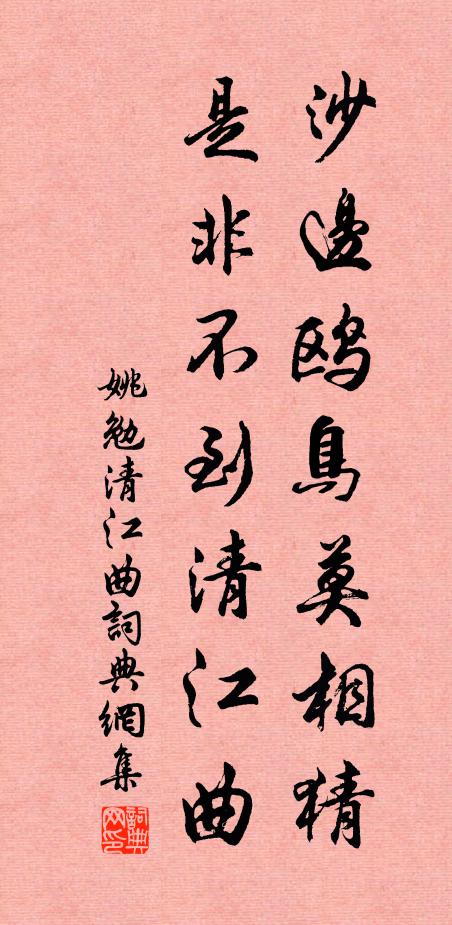 沙邊鷗鳥莫相猜
是非不到清江曲
姚勉清江曲詞典網集
詞典网印